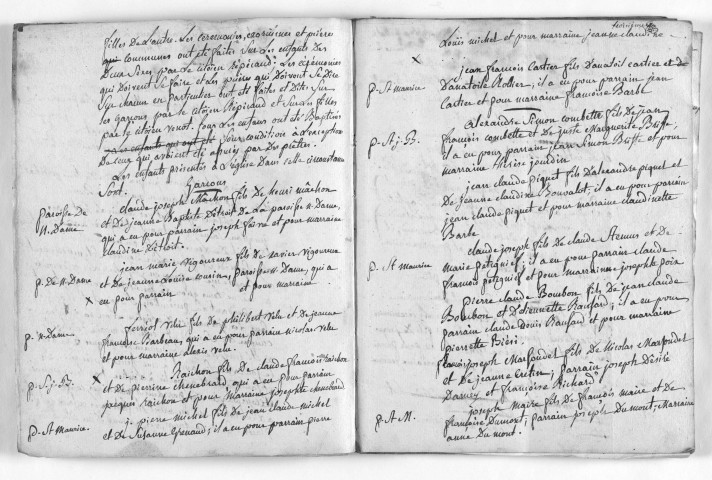 filles de l'autre. Les ceremonies, exorcismes et prieres
qui communes ont été faites sur les enfants des
deux sexes par le citoyen Répiraud: les ceremonies
qui doivent se faire et les prieres qui doivent se dire
sur chacun en particulier ont été faites et dites sur
les garçons par le citoyen Répiraud et sur les filles
par le citoyen. tous les enfans ont été Baptisés
Les enfants qui ont été sous condition à l'exception
de ceux qui avoient été par des prêtres.
Les enfants présentés a l'église dans cette circonstance
sont.
Garçons
Paroisse de
N. Dame
claude joseph Mâchon fils de henri mâchon
et de jeanne Baptiste Détroit de la paroisse N. Dame,
qui a eu pour parrain joseph faivre et pour marraine
claudine Détroit.
jean marie Vigoureux fils de xavier Vigoureux
p. de N. Dame
et de jeanne Louise, paroisse N. Dame, qui a
x eu pour parrain et pour marraine
p. N. Dame
ferriol Velu fils de philibert Velu et de jeanne
françoise Barbeau, qui a eu pour parrain nicolas Velu
et pour marraine alexis velu.
x
Raichon fils de claude françois Raichon
p. S. j. B.
et de pierrine chenebrard qui a eu pour parrain
jacques raichon et pour marraine josephte chenebrard
j. pierre michel fils de jean claude michel
p. St Maurice.
et de Suzanne Grenaud; il a eu pour parrain pierre
Louis michel et pour marraine jeanne claudine
x
jean françois Cartier fils Danatoil cartier et de
p. St maurice
Danatoile Rollier, il a eu pour parrain jean
Cartier et pour marraine françoise Barbe
alexandre Simon combette fils de jean
p. St j. B.
françois combette et de juste Marguerite Biffe,
il a eu pour parrain jean Simon Biffe et pour
marraine therese jourdin
jean claude piquet fils d'alexandre piquet et
De jeanne claudine Bouvalot, il a eu pour parrain
jean claude piquet et pour marraine claudinette
Barbe
claude joseph fils de claude Stemus et de
p. St Maurice
Marie petignief; il a eu pour parrain claude
françois petignief et pour marraine josephte poix
pierre claude Boubon fils de jean claude
Boubon et d'etiennette Ranfaud; il a eu pour
parrain claude Louis Ranfaud et pour marraine
pierrette Biéri
françois joseph Marsoudet fils De Nicolas Marsoudet
et De jeanne; parrain joseph Désiré
Darney et françoise Richard
joseph maire fils de françois maire et de
p. St M.
françoise Dumont; parrain joseph Dumont; Marraine
anne Dumont.